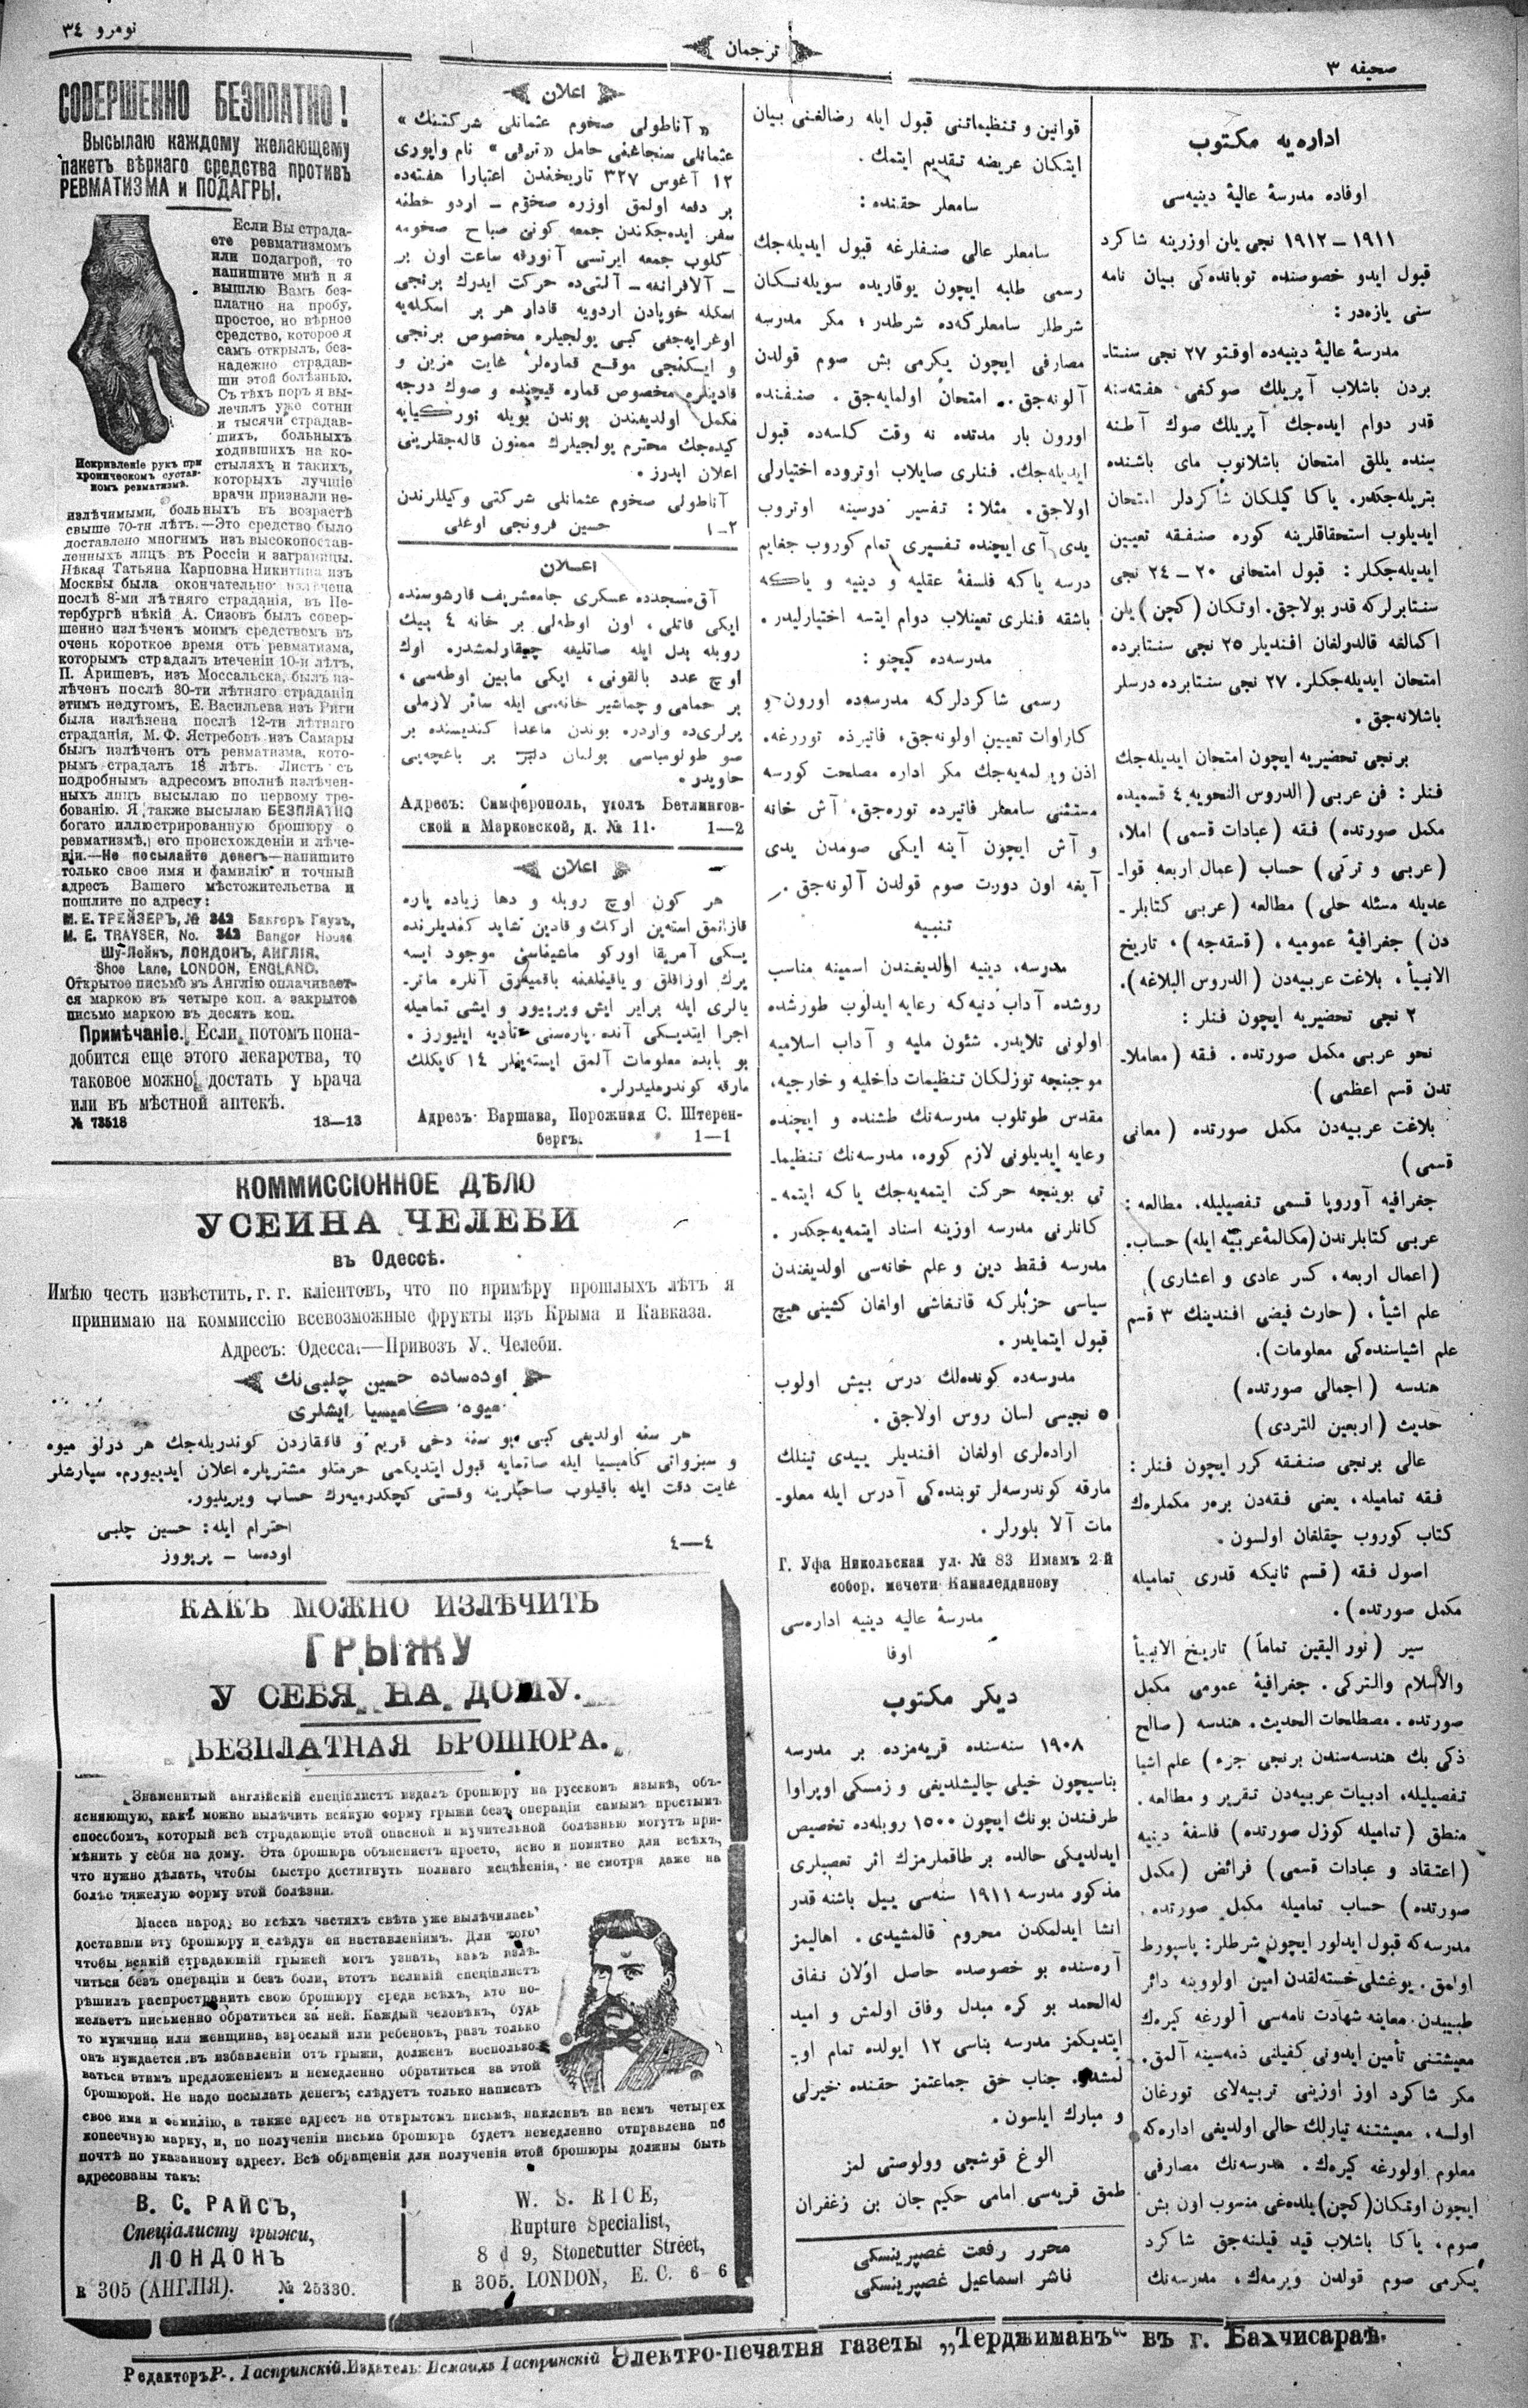 صحیفه ٣
ترجمان
نومرو ٣٤
اداره‌یه مكتوب
اوفاده مدرسهٔ عالیهٔ دینیه‌سی
١٩١١ – ١٩١٢ نجی یان اوزرینه شاكرد
قبول ایدو خصوصنده توبانده‌كی بیان نامه
سنی یازه‌در :
مدرسهٔ عالیهٔ دینیه‌ده اوقتو ٢٧ نجی سنتا-
بردن باشلاب آپریلك صوكغی هفته‌سنه
قدر دوام ایده‌جك آپریلك صوك آطنه
سنده یللق امتحان باشلانوب مای باشنده
بتریله‌جكدر. یاكا كیلكان شاكردلر امتحان
ایدیلوب استحقاقلرینه كوره صنفقه تعیین
ایدیله‌جكلر : قبول امتحانی ٢٠ – ٢٤ نجی
سنتابرلركه قدر بولاجق. اوتكان (كچن) یلن
اكمالغه قالدولغان افندیلر ٢٥ نجی سنتابرده
امتحان ایدیله‌جكلر. ٢٧ نجی سنتابرده درسلر
باشلانه‌جق .
برنجی تحضیریه ایچون امتحان ایدیله‌جك
فنلر : فن عربی (الدروس النحویه ٤ قسمیده
مكمل صورتده) فقه (عبادات قسمی) املا،
(عربی و تركی) حساب (عمال اربعه قوا-
عدیله مسئله حلی) مطالعه (عربی كتابلر-
دن) جغرافیهٔ عمومیه ، (قسقه‌جه) ، تاریخ
الانبیأ ، بلاغت عربیه‌دن (الدروس البلاغه).
٢ نجی تحضیریه ایچون فنلر :
نحو عربی مكمل صورتده . فقه (معاملا-
تدن قسم اعظمی)
بلاغت عربیه‌دن مكمل صورتده (معانی
قسمی)
جغرافیه آوروپا قسمی تفصیلیله، مطالعه :
عربی كتابلرندن (مكالمهٔ عربیه ایله) حساب.
(اعمال اربعه، كسر عادی و اعشاری)
علم اشیأ ، (حارث فیضی افندینك ٣ قسم
علم اشیاسنده‌كی معلومات).
هندسه (اجمالی صورتده)
حدیث (اربعین للتردی)
عالی برنجی صنفقه كرر ایچون فنلر :
فقه تمامیله، یعنی فقه‌دن برەر مكملرەك
كتاب كوروب چقلغان اولسون .
اصول فقه (قسم ثانیكه قدری تمامیله
مكمل صورتده) .
سیر (نور الیقین تماماً) تاریخ الانبیأ
والاسلام والتركی . جغرافیهٔ عمومی مكمل
صورتده . مصطلحات الحدیث. هندسه (صالح
ذكی بك هندسه‌سندن برنجی جزء) علم اشیا
تفصیلیله، ادبیات عربیه‌دن تقریر و مطالعه .
منطق (تمامیله كوزل صورتده) فلسفهٔ دینیه
(اعتقاد و عبادات قسمی) فرائض (مكمل
صورتده) حساب تمامیله مكمل صورتده .
مدرسه‌كه قبول ایدلور ایچون شرطلر: پاسپورط
اولمق . یوغشلی خسته‌لقدن امین اولووینه دائر
طبیبدن معاینه شهادت نامه‌سی آلورغه كیره‌ك
معیشتنی تأمین ایدونی كفیلنی ذمه‌سینه آلمق.
مكر شاكرد اوز اوزینی تربیه‌لای تورغان
اولسه ، معیشتنه تیارلك حالی اولدیغی اداره‌كه
معلوم اولورغه كیره‌ك . مدرسه‌نك مصارفی
ایچون اوتكان(كچن)یلده‌غی منسوب اون بش
صوم ، یاكا باشلاب قید قیلنه‌جق شاكرد
یكرمی صوم قولدن ویرمه‌ك، مدرسه‌نك
قوانین و تنظیماتنی قبول ایله رضالغنی بیان
ایتكان عریضه تقدیم ایتمك .
سامعلر حقنده :
سامعلر عالی صنفلرغه قبول ایدیله‌جك
رسمی طلبه ایچون یوقاریده سویله‌نكان
شرطلر سامعلركه‌ده شرطدر ؛ مكر مدرسه
مصارفی ایچون یكرمی بش صوم قولدن
آلونه‌جق . امتحان اولمایه‌جق . صنفنده
اورون بار مدتده نه وقت كلسه‌ده قبول
ایدیله‌جك. فنلری صایلاب اوتروده اختیارلی
اولاجق. مثلا : تفسیر درسینه اوتروب
یدی آی ایچنده تفسیری تمام كوروب جغایم
درسه یاكه فلسفهٔ عقلیه و دینیه و یاكه
باشقه فنلری تعینلاب دوام ایتسه اختیارلیدر .
مدرسه‌ده كیچنو :
رسمی شاكردلركه مدرسه‌ده اورون و
كاراوات تعیین اولونه‌جق، فاتیرده توررغه.
اذن ویرلمه‌یه‌جك مكر اداره مصلحت كورسه
مستثنی سامعلر فاتیرده توره‌جق. آش خانه
و آش ایچون آینه ایكی صومدن یدی
آیغه اون دورت صوم قولدن آلونه‌جق .
تنبیه
مدرسه، دینیه اولدیغندن اسمینه مناسب
روشده آداب دنیه‌كه رعایه ایدلوب طورشده
اولونی تلایدر. شئون ملیه و آداب اسلامیه
موجبنجه توزلكان تنظیمات داخلیه و خارجیه،
مقدس طوتلوب مدرسه‌نك طشنده و ایچنده
رعایه ایدیلونی لازم كوره، مدرسه‌نك تنظیما-
تی بوینچه حركت ایتمه‌یه‌جك یاكه ایتمه-
كانلرنی مدرسه اوزینه اسناد ایتمه‌یه‌جكدر .
مدرسه فقط دین و علم خانه‌سی اولدیغندن
سیاسی حزبلركه قاتغاشی اولغان كشینی هیچ
قبول ایتمایدر .
مدرسه‌ده كونده‌لك درس بیش اولوب
٥ نجیسی لسان روس اولاجق .
اراده‌لری اولغان افندیلر ییدی تینلك
مارقه كوندرسه‌لر توبنده‌كی آدرس ایله معلو-
مات آلا بلورلر .
Г. Уфа Никольская ул. № 83 Имамъ 2-й
собор. мечети Камаледдинову
مدرسهٔ عالیه دینیه اداره‌سی
اوفا
دیكر مكتوب
١٩٠٨ سنه‌سنده قریه‌مزده بر مدرسه
بناسیچون خیلی چالیشلدیغی و زمسكی اوپراوا
طرفندن بونك ایچون ١٥٠٠ روبله‌ده تخصیص
ایدلدیكی حالده بر طاقملرمزك اثر تعصبلری
مذكور مدرسه ١٩١١ سنه‌سی ییل باشنه قدر
انشا ایدلمكدن محروم قالمشیدی . اهالیمز
آره‌سنده بو خصوصده حاصل اولان نفاق
له‌الحمد بو كره مبدل وفاق اولمش و امید
ایتدیكمز مدرسه بناسی ١٢ ایولده تمام او-
لمشدر. جناب حق جماعتمز حقنده خیرلی
و مبارك ایلسون .
الوغ قوشچی وولوستی لمز
طمق قریه‌سی امامی حكیم جان بن زغفران
محرر رفعت غصپرینسكی
ناشر اسماعیل غصپرینسكی
اعلان
« آناطولی صخوم عثمانلی شركتنك »
عثمانلی سنجاغنی حامل «ترقی» نام واپوری
١٢ آغوس ٣٢٧ تاریخندن اعتبارا هفته‌ده
بر دفعه اولمق اوزره صخوم – اردو خطنه
سفر ایده‌جكندن جمعه كونی صباح صخومه
كلوب جمعه ایرتسی آنورقه ساعت اون بر
– آلافرانغه – آلتی‌ده حركت ایدرك برنجی
اسكله خوپادن اردویه قادار هر بر اسكله‌یه
اوغرایه‌جغی كبی یولجیلره مخصوص برنجی
و ایكنجی موقع قماره‌لر غایت مزین و
قادینلره مخصوص قماره قیچنده و صوك درجه
مكمل اولدیغندن بوندن بویله توركیایه
كیده‌جك محترم یولجیلرك ممنون قاله‌جقلرینی
اعلان ایدرز .
آناطولی صخوم عثمانلی شركتی وكیللرندن
٢–١ حسین فرونجی اوغلی
اعلان
آق‌مسجدده عسكری جامعشریف قارشوسنده
ایكی قاتلی، اون اوطه‌لی بر خانه ٤ بیك
روبله بدل ایله صاتلیغه چیقارلمشدر. اوك
اوچ عدد بالقونی، ایكی مابین اوطه‌سی،
بر حمامی و چماشیر خانه‌سی ایله سائر لازملی
یرلری‌ده واردر. بوندن ماعدا كندیسنده بر
صو طولومباسی بولنان دلبر بر باغچه‌یی
حاویدر.
Адресъ: Симферополь, уголъ Бетлингов-
ской и Марковской, д. № 11. 1—2
اعلان
هر كون اوچ روبله و دها زیاده پاره
قازانمق استه‌ین ارك و قادین شاید كندیلرنده
یسكی آمریقا اوركو ماشیناسی موجود ایسه
یرك اوزاقلق و یاقینلغنه باقمیرق آنلره ماتر-
یالری ایله برابر ایش ویرییور و ایشی تمامیله
اجرا ایتدیكی آنده پاره‌سنی تأدیه ایلیورز .
بو بابده معلومات آلمق ایسته‌ینلر ١٤ كاپكلك
مارقه كوندرملیدرلر.
Адресъ: Варшава, Порожная С. Штерен-
бергъ. 1—1
СОВЕРШЕННО БЕЗПЛАТНО!
Высылаю каждому желающему
пакетъ вѣрнаго средства противъ
РЕВМАТИЗМА и ПОДАГРЫ.
Если Вы страда-
ете ревматизмомъ
или подагрой, то
напишите мнѣ и я
вышлю Вамъ без-
платно на пробу,
простое, но вѣрное
средство, которое я
самъ открылъ, без-
надежно страдав-
ши этой болѣзнью.
Съ тѣхъ поръ я вы-
лечилъ уже сотни
и тысячи страдав-
шихъ, больныхъ
ходившихъ на ко-
стыляхъ и такихъ,
которыхъ лучшіе
врачи признали не-
Искривленіе рукъ при
хроническомъ сустав-
номъ ревматизмѣ.
излѣчимыми, больныхъ въ возрастѣ
свыше 70-ти лѣтъ.—Это средство было
доставлено многимъ изъ высокопостав-
ленныхъ лицъ въ Россіи и заграницы.
Нѣкая Татьяна Карповна Никитина изъ
Москвы была окончательно излѣчена
послѣ 8-ми лѣтняго страданія, въ Пе-
тербургѣ нѣкій А. Сизовъ былъ совер-
шенно излѣченъ моимъ средствомъ въ
очень короткое время отъ ревматизма,
которымъ страдалъ втеченіи 10-и лѣтъ,
П. Аришевъ, изъ Моссальска, былъ из-
лѣченъ послѣ 30-ти лѣтняго страданія
этимъ недугомъ, Е. Васильева изъ Риги
была излѣчена послѣ 12-ти лѣтняго
страданія, М. Ф. Ястребовъ изъ Самары
былъ излѣченъ отъ ревматизма, кото-
рымъ страдалъ 18 лѣтъ. Листъ съ
подробнымъ адресомъ вполнѣ излѣчен-
ныхъ лицъ высылаю по первому тре-
бованію. Я также высылаю БЕЗПЛАТНО
богато иллюстрированную брошюру о
ревматизмѣ, его происхожденіи и лѣче-
ніи.—Не посылайте денегъ—напишите
только свое имя и фамилію и точный
адресъ Вашего мѣстожительства и
пошлите по адресу:
М. Е. ТРЕЙЗЕРЪ, № 343 Бангоръ Гаузъ,
M. E. TRAYSER, No. 343 Bangor House
Шу-Лейнъ, ЛОНДОНЪ, АНГЛІЯ.
Shoe Lane, LONDON, ENGLAND.
Открытое письмо въ Англію оплачивает-
ся маркою въ четыре коп. а закрытое
письмо маркою въ десять коп.
Примѣчаніе. Если, потомъ пона-
добится еще этого лекарства, то
таковое можно достать у врача
или въ мѣстной аптекѣ.
№ 73518 13—13
КОММИССІОННОЕ ДѢЛО
УСЕИНА ЧЕЛЕБИ
въ Одессѣ.
Имѣю честь извѣстить, г. г. кліентовъ, что по примѣру прошлыхъ лѣтъ я
принимаю на коммиссію всевозможные фрукты изъ Крыма и Кавказа.
Адресъ: Одесса.—Привозъ У. Челеби.
اوده‌ساده حسین چلبی‌نك
میوه كامیسیا ایشلری
هر سنه اولدیغی كبی بو سنه دخی قریم و قافقازدن كوندریله‌جك هر درلو میوه
و سبزواتی كامیسیا ایله صاتمایه قبول ایتدیكمی حرمتلو مشتریلره اعلان ایدییورم. سپارشلر
غایت دقت ایله باقیلوب صاحبلرینه وقستی كچكدرمیه‌رك حساب ویریلیور.
احترام ایله: حسین چلبی
اوده‌سا – پریووز ٤—٤
КАКЪ МОЖНО ИЗЛѢЧИТЬ
ГРЫЖУ
У СЕБЯ НА ДОМУ.
БЕЗПЛАТНАЯ БРОШЮРА.
Знаменитый англійскій спеціалистъ издалъ брошюру на русскомъ языкѣ, объ-
ясняющую, какъ можно вылѣчить всякую форму грыжи безъ операціи самымъ простымъ
способомъ, который всѣ страдающіе этой опасной и мучительной болѣзнью могутъ при-
мѣнить у себя на дому. Эта брошюра объясняетъ просто, ясно и понятно для всѣхъ,
что нужно дѣлать, чтобы быстро достигнуть полнаго исцѣленія, не смотря даже на
болѣе тяжелую форму этой болѣзни.
Масса народу во всѣхъ частяхъ свѣта уже вылѣчилась
доставши эту брошюру и слѣдуя ея наставленіямъ. Для того
чтобы всякій страдающій грыжей могъ узнать, какъ излѣ-
читься безъ операціи и безъ боли, этотъ великій спеціалистъ
рѣшилъ распространить свою брошюру среди всѣхъ, кто по-
желаетъ письменно обратиться за ней. Каждый человѣкъ, будь
то мужчина или женщина, взрослый или ребенокъ, разъ только
онъ нуждается въ избавленіи отъ грыжи, долженъ воспользо-
ваться этимъ предложеніемъ и немедленно обратиться за этой
брошюрой. Не надо посылать денегъ; слѣдуетъ только написать
свое имя и фамилію, а также адресъ на открытомъ письмѣ, наклеивъ на немъ четырех
копеечную марку, и, по полученіи письма брошюра будетъ немедленно отправлена по
почтѣ по указанному адресу. Всѣ обращенія для полученія этой брошюры должны быть
адресованы такъ:
В. С. РАЙСЪ,
Спеціалисту грыжи,
ЛОНДОНЪ
R 305 (АНГЛІЯ). № 25330.
W. S. RICE,
Rupture Specialist,
8 d 9, Stonecutter Street,
R 305. LONDON, E. C. 6—6
Редакторъ Р. Гаспринскій. Издатель: Исмаилъ Гаспринскій Электро-печатня газеты „Терджиманъ“ въ г. Бахчисараѣ.